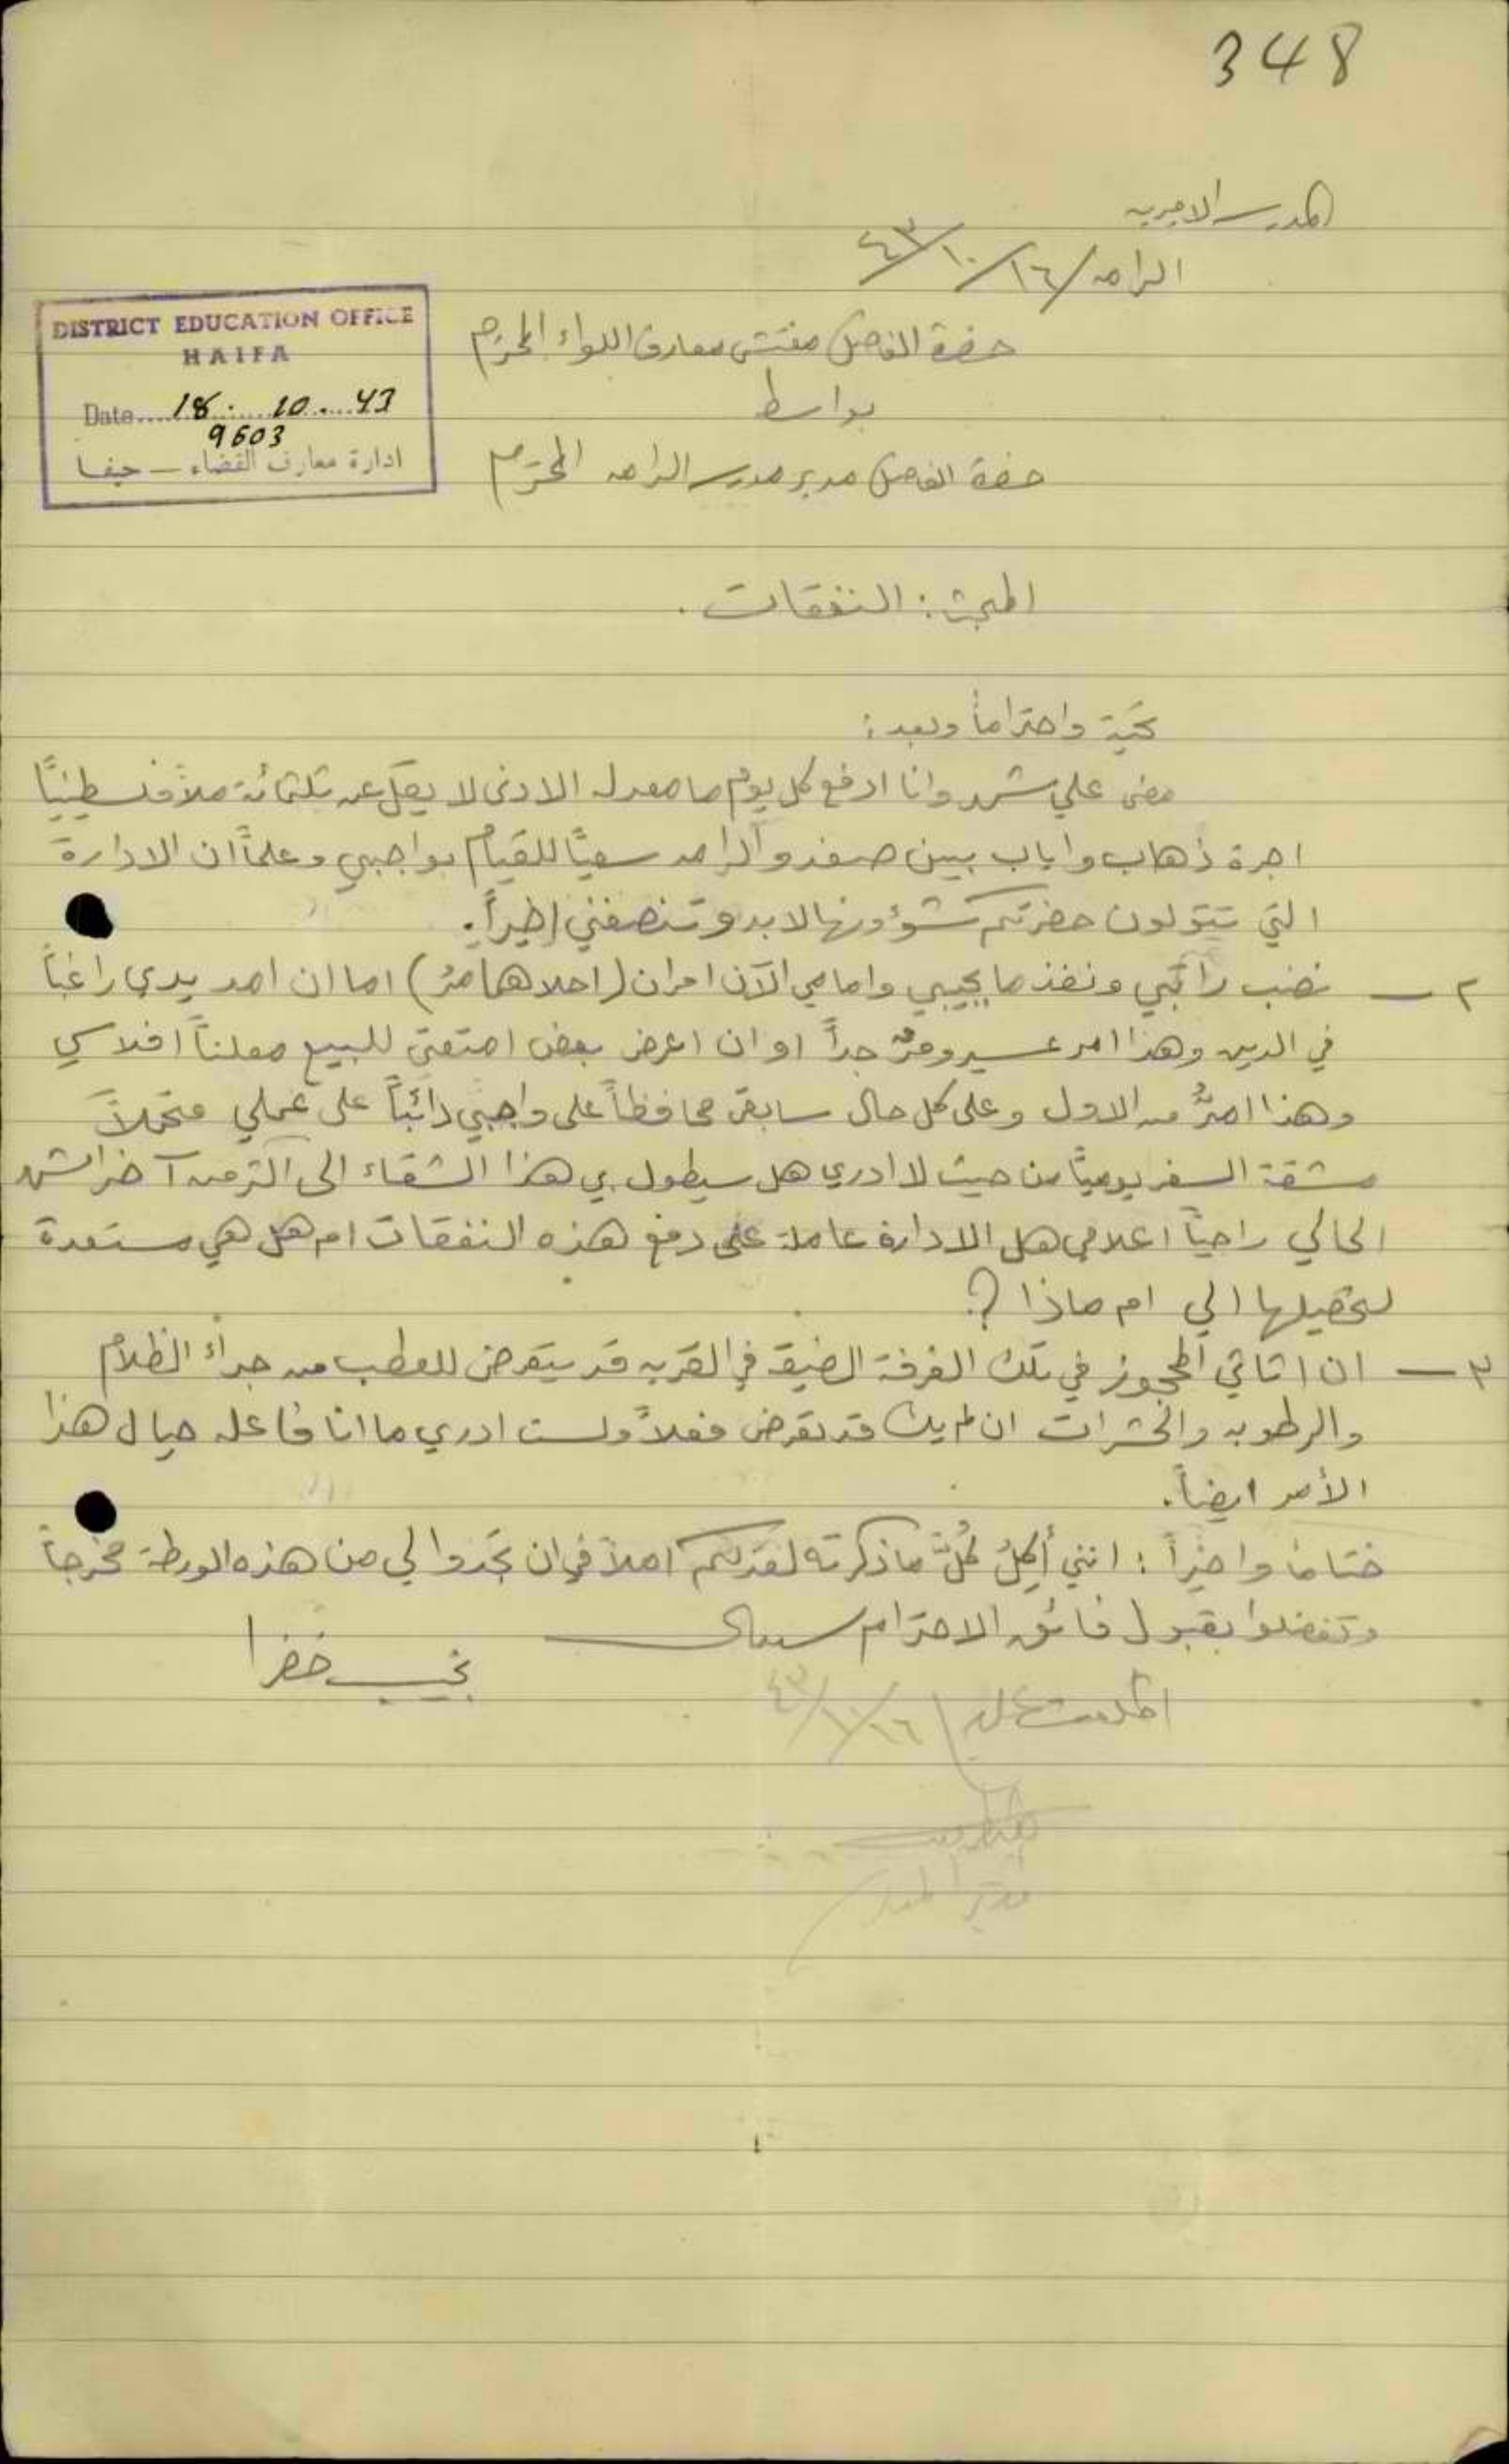 348
المدرسة الاميرية
الرامه ١٦/١٠/٤٣
DISTRICT EDUCATION OFFICE
HAIFA
Date.... 18. 10. 43
9603
ادارة معارف القضاء — حيفا
حضرة الفاضل مفتش معارف اللواء المحترم
بواسطة
حضرة الفاضل مدير مدرسة الرامه المحترم
المبحث: النفقات.
تحية واحتراماً وبعد:
مضى علي شهر وانا ادفع كل يوم ما معدله الادنى لا يقل عن ثلثمائة ملاً فلسطينيًا
اجرة ذهاب واياب بين صفد والرامه سعيًا للقيام بواجبي وعلماً ان الادارة
التي تتولون حضرتكم شؤونها لا بد وتنصفني اخيراً.
٢ — نضب راتبي ونفذ ما بجيبي وامامي الآن امران (احلاهما مرُّ) اما ان امد يدي راغباً
في الدين وهذا امر عسير ومرٌّ جداً او ان اعرض بعض امتعتي للبيع معلناً افلاسي
وهذا امرُّ من الاول وعلى كل حال سابقى محافظاً على واجبي دائباً على عملي متحملاً
مشقة السفر يوميًا من حيث لا ادري هل سيطول بي هذا الشقاء الى اكثر من آخر الشهر
الحالي راجياً اعلامي هل الادارة عاملة على دفع هذه النفقات ام هل هي مستعدة
لتحصيلها الي ام ماذا ؟.
٣ — ان اثاثي المحجوز في تلك الغرفة الضيقة في القريه قد يتعرض للعطب من جراء الظلام
والرطوبه والحشرات ان لم يك قد تعرض فعلاً ولست ادري ما انا فاعله حيال هذا
الأمر ايضاً.
ختاماً واخيراً : انني أكِلُ كُلَّ ما ذكرته لعدلكم املاً في ان تجدوا لي من هذه الورطة مخرجاً
وتفضلوا بقبول فائق الاحترام سيدي
نجيب خضرا
اطلعت عليه ١٦/١٠/٤٣
مدير المدرسة